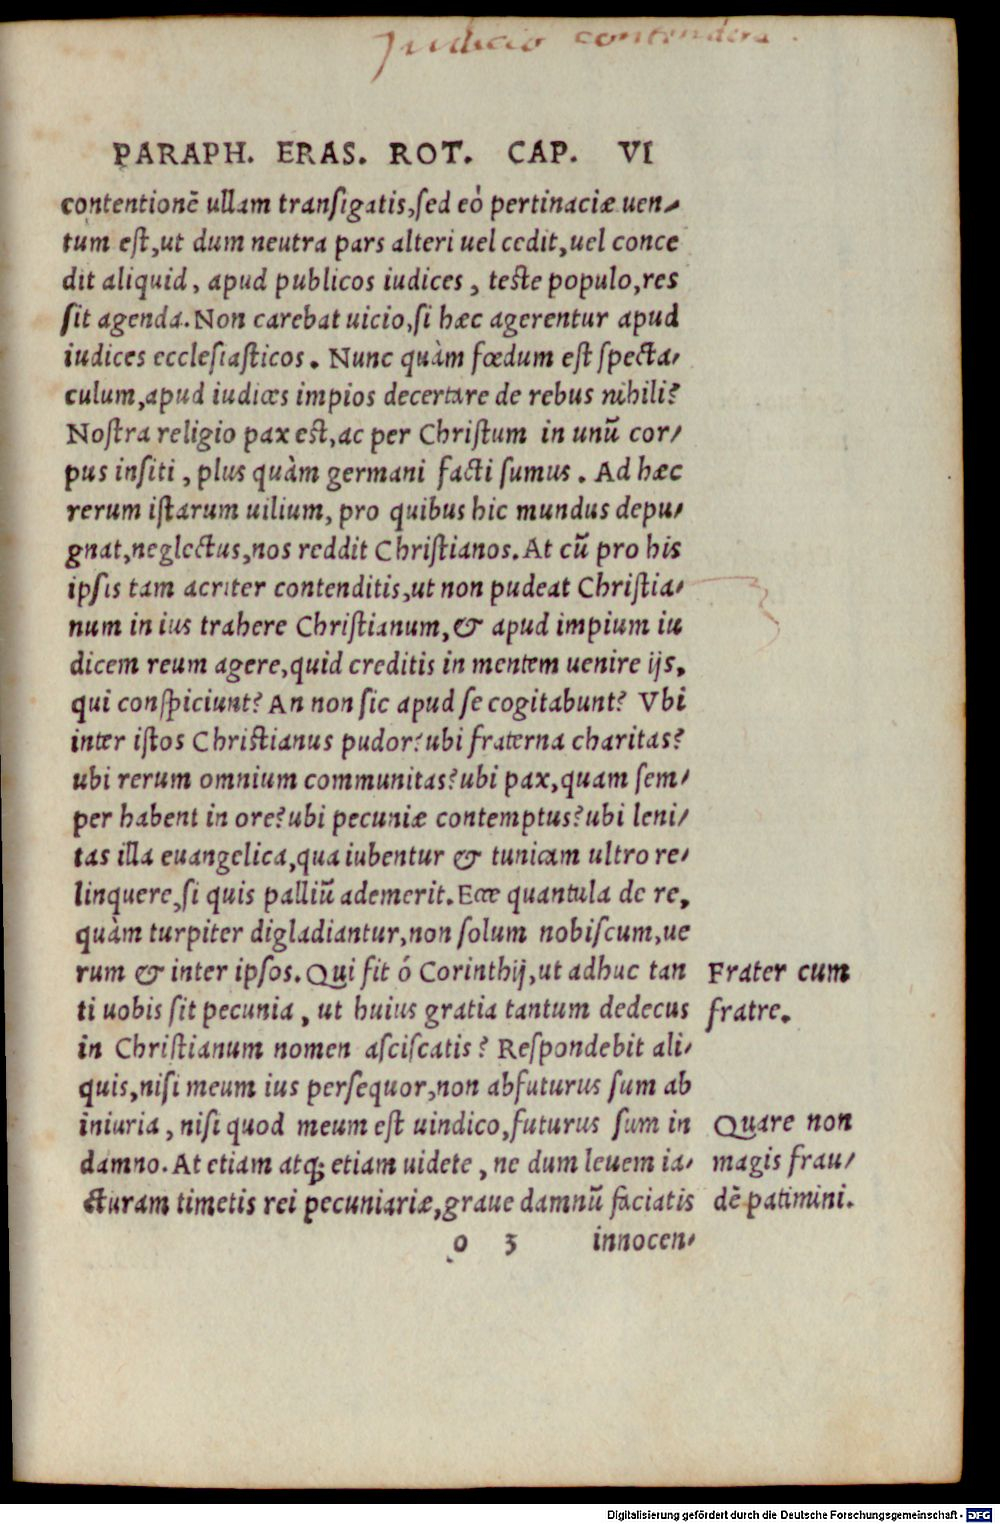 Judicio contendere.
PARAPH. ERAS. ROT. CAP. VI
contentionē ullam transigatis, sed eò pertinaciæ uen-
tum est, ut dum neutra pars alteri uel cedit, uel conce
dit aliquid, apud publicos iudices, teste populo, res
sit agenda. Non carebat uicio, si hæc agerentur apud
iudices ecclesiasticos. Nunc quàm fœdum est specta-
culum, apud iudices impios decertare de rebus nihili?
Nostra religio pax est, ac per Christum in unū cor-
pus insiti, plus quàm germani facti sumus. Ad hæc
rerum istarum uilium, pro quibus hic mundus depu-
gnat, neglectus, nos reddit Christianos. At cū pro his
ipsis tam acriter contenditis, ut non pudeat Christia-
num in ius trahere Christianum, & apud impium iu
dicem reum agere, quid creditis in mentem uenire ijs,
qui conspiciunt? An non sic apud se cogitabunt? Vbi
inter istos Christianus pudor? ubi fraterna charitas?
ubi rerum omnium communitas? ubi pax, quam sem-
per habent in ore? ubi pecuniæ contemptus? ubi leni-
tas illa euangelica, qua iubentur & tunicam ultro re-
linquere, si quis palliū ademerit. Ecce quantula de re,
quàm turpiter digladiantur, non solum nobiscum, ue
rum & inter ipsos. Qui fit ó Corinthij, ut adhuc tan
ti uobis sit pecunia, ut huius gratia tantum dedecus
in Christianum nomen asciscatis? Respondebit ali-
quis, nisi meum ius persequor, non abfuturus sum ab
iniuria, nisi quod meum est uindico, futurus sum in
damno. At etiam atq; etiam uidete, ne dum leuem ia-
cturam timetis rei pecuniariæ, graue damnū faciatis
o 3 innocen-
Frater cum
fratre.
Quare non
magis frau-
dē patimini.
Digitalisierung gefördert durch die Deutsche Forschungsgemeinschaft - DFG